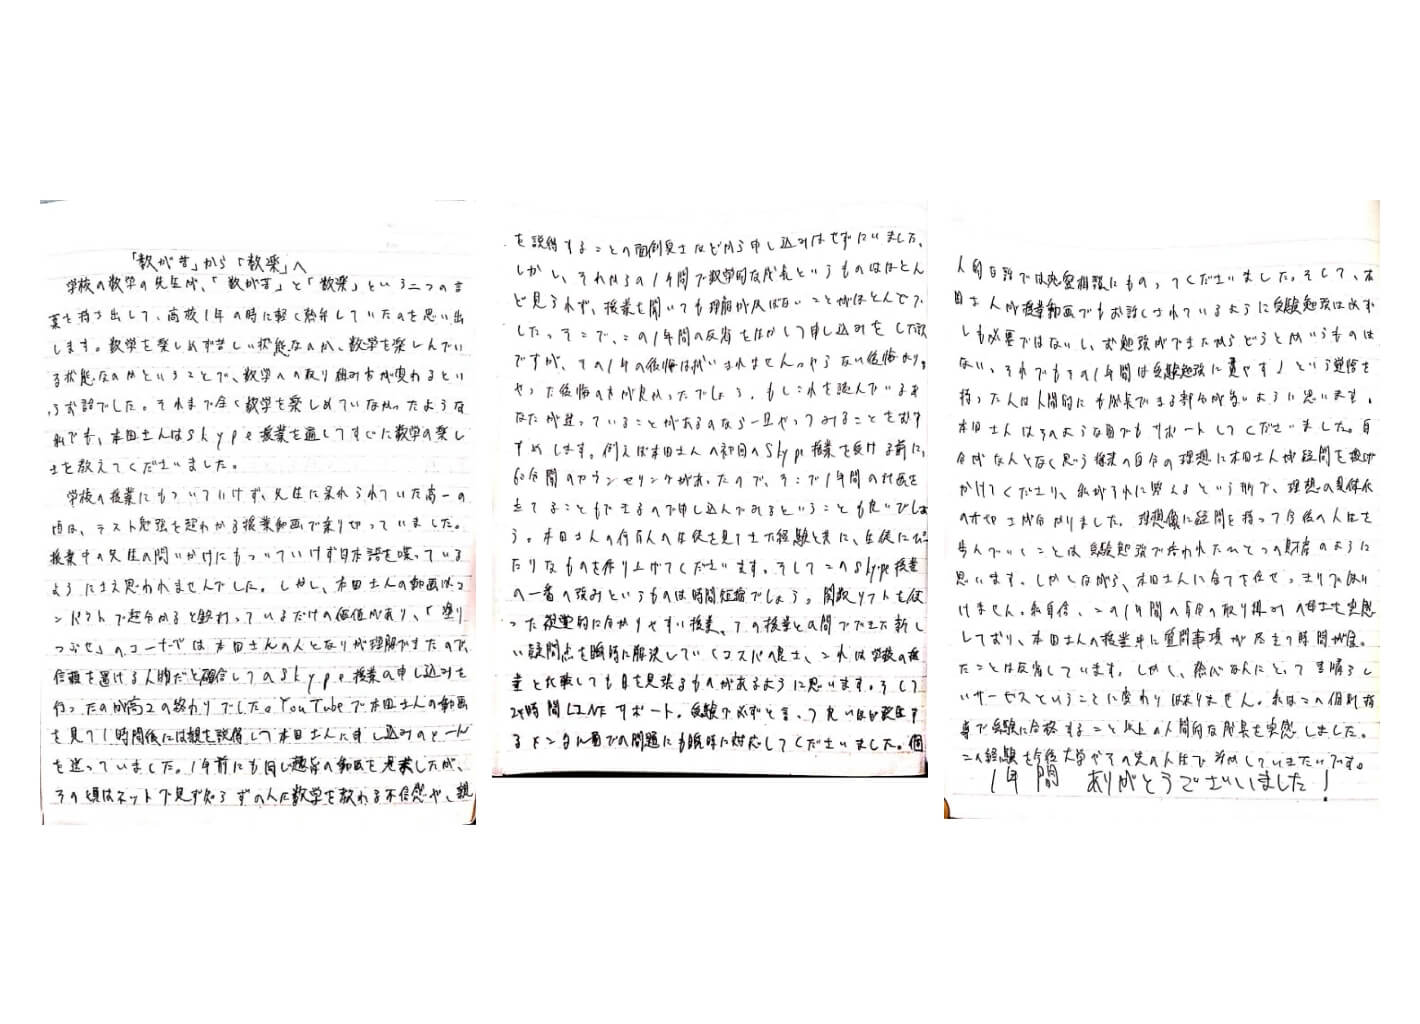 「数が苦」から「数楽」へ
学校の数学の先生が、「数が苦」と「数楽」という二つの言
葉を持ち出して、高校1年の時に軽く熱弁していたのを思い出
します。数学を楽しめず苦しい状態なのか、数学を楽しんでい
る状態なのかということで、数学への取り組み方が変わるとい
うお話でした。それまで全く数学を楽しめていなかったような
私でも、本田さんはSkype授業を通してすぐに数学の楽し
さを教えてくださいました。
学校の授業にもついていけず、先生に呆れられていた高一の
頃は、テスト勉強を超わかる授業動画で乗り切っていました。
授業中の先生の問いかけにもついていけず日本語を喋っている
ようにさえ思われませんでした。しかし、本田さんの動画はコ
ンパクトで超分かると銘打っているだけの価値があり、「塗り
つぶせ」のコーナーでは本田さんの人となりが理解できたので、
信頼を置ける人物だと確信してのSkype授業の申し込みを
行ったのが高2の終わりでした。YouTubeで本田さんの動画
を見て1時間後には親を説得して本田さんに申し込みのメール
を送っていました。1年前にも同じ趣旨の動画を見ましたが、
その頃はネットで見ず知らずの人に数学を教わる不信感や、親
を説得することの面倒臭さなどから申し込みはせずにいました。
しかし、それからの1年間で数学的な成長というものはほとん
ど見られず、授業を聞いても理解が及ばないことがほとんどで
した。そこで、この1年間の反省を活かして申し込みをした訳
ですが、その1年の後悔は拭いきれません。やらない後悔より、
やった後悔の方が良かったでしょう。もしこれを読んでいるあ
なたが迷っていることがあるのなら一旦やってみることをおす
すめします。例えば本田さんの初回のSkype授業を受ける前に、
60分間のカウンセリングがあったので、そこで1年間の計画を
立てることもできるので申し込んでみるということも良いでしょ
う。本田さんの何百人の生徒を見てきた経験と共に、生徒にぴっ
たりなものを作り上げてくださいます。そしてこのSkype授業
の一番の強みというものは時間短縮でしょう。関数ソフトを使
った視覚的に分かりやすい授業、その授業との間でできた新し
い疑問点を瞬時に解決していくコスパの良さ、これは学校の授
業と比較しても目を見張るものがあるように思います。そして
24時間LINEサポート。受験で必ずと言って良いほど発生す
るメンタル面での問題にも瞬時に対応してくださいました。個
人的な話では恋愛相談にものってくださいました。そして、本
田さんが授業動画でもお話しされているように受験勉強は必ず
しも必要ではないし、お勉強ができたからどうとかいうものは
ない、それでもその1年間は受験勉強に費やす」という覚悟を
持った人は人間的にも成長できる部分が多いように思います。
本田さんはそのような面でもサポートしてくださいました。自
分がなんとなく思う将来の自分の理想に本田さんが疑問を投げ
かけてくださり、私がそれに答えるという形で、理想の具体化
の大切さが分かりました。理想像に疑問を持って今後の人生を
歩んでいくことは受験勉強で培われたひとつの財産のように
思います。しかしながら、本田さんに全てを任せっきりではい
けません。私自信、この1年間の自分の取り組みの甘さを実感
しており、本田さんの授業中に質問事項が尽きて時間が余っ
たことは反省しています。しかし、熱心な人にとって素晴らし
いサービスということに変わりはありません。私はこの個別指
導で受験に合格すること以上の人間的な成長を実感しました。
この経験を今後大学やその先の人生で活かしていきたいです。
1年間 ありがとうございました!